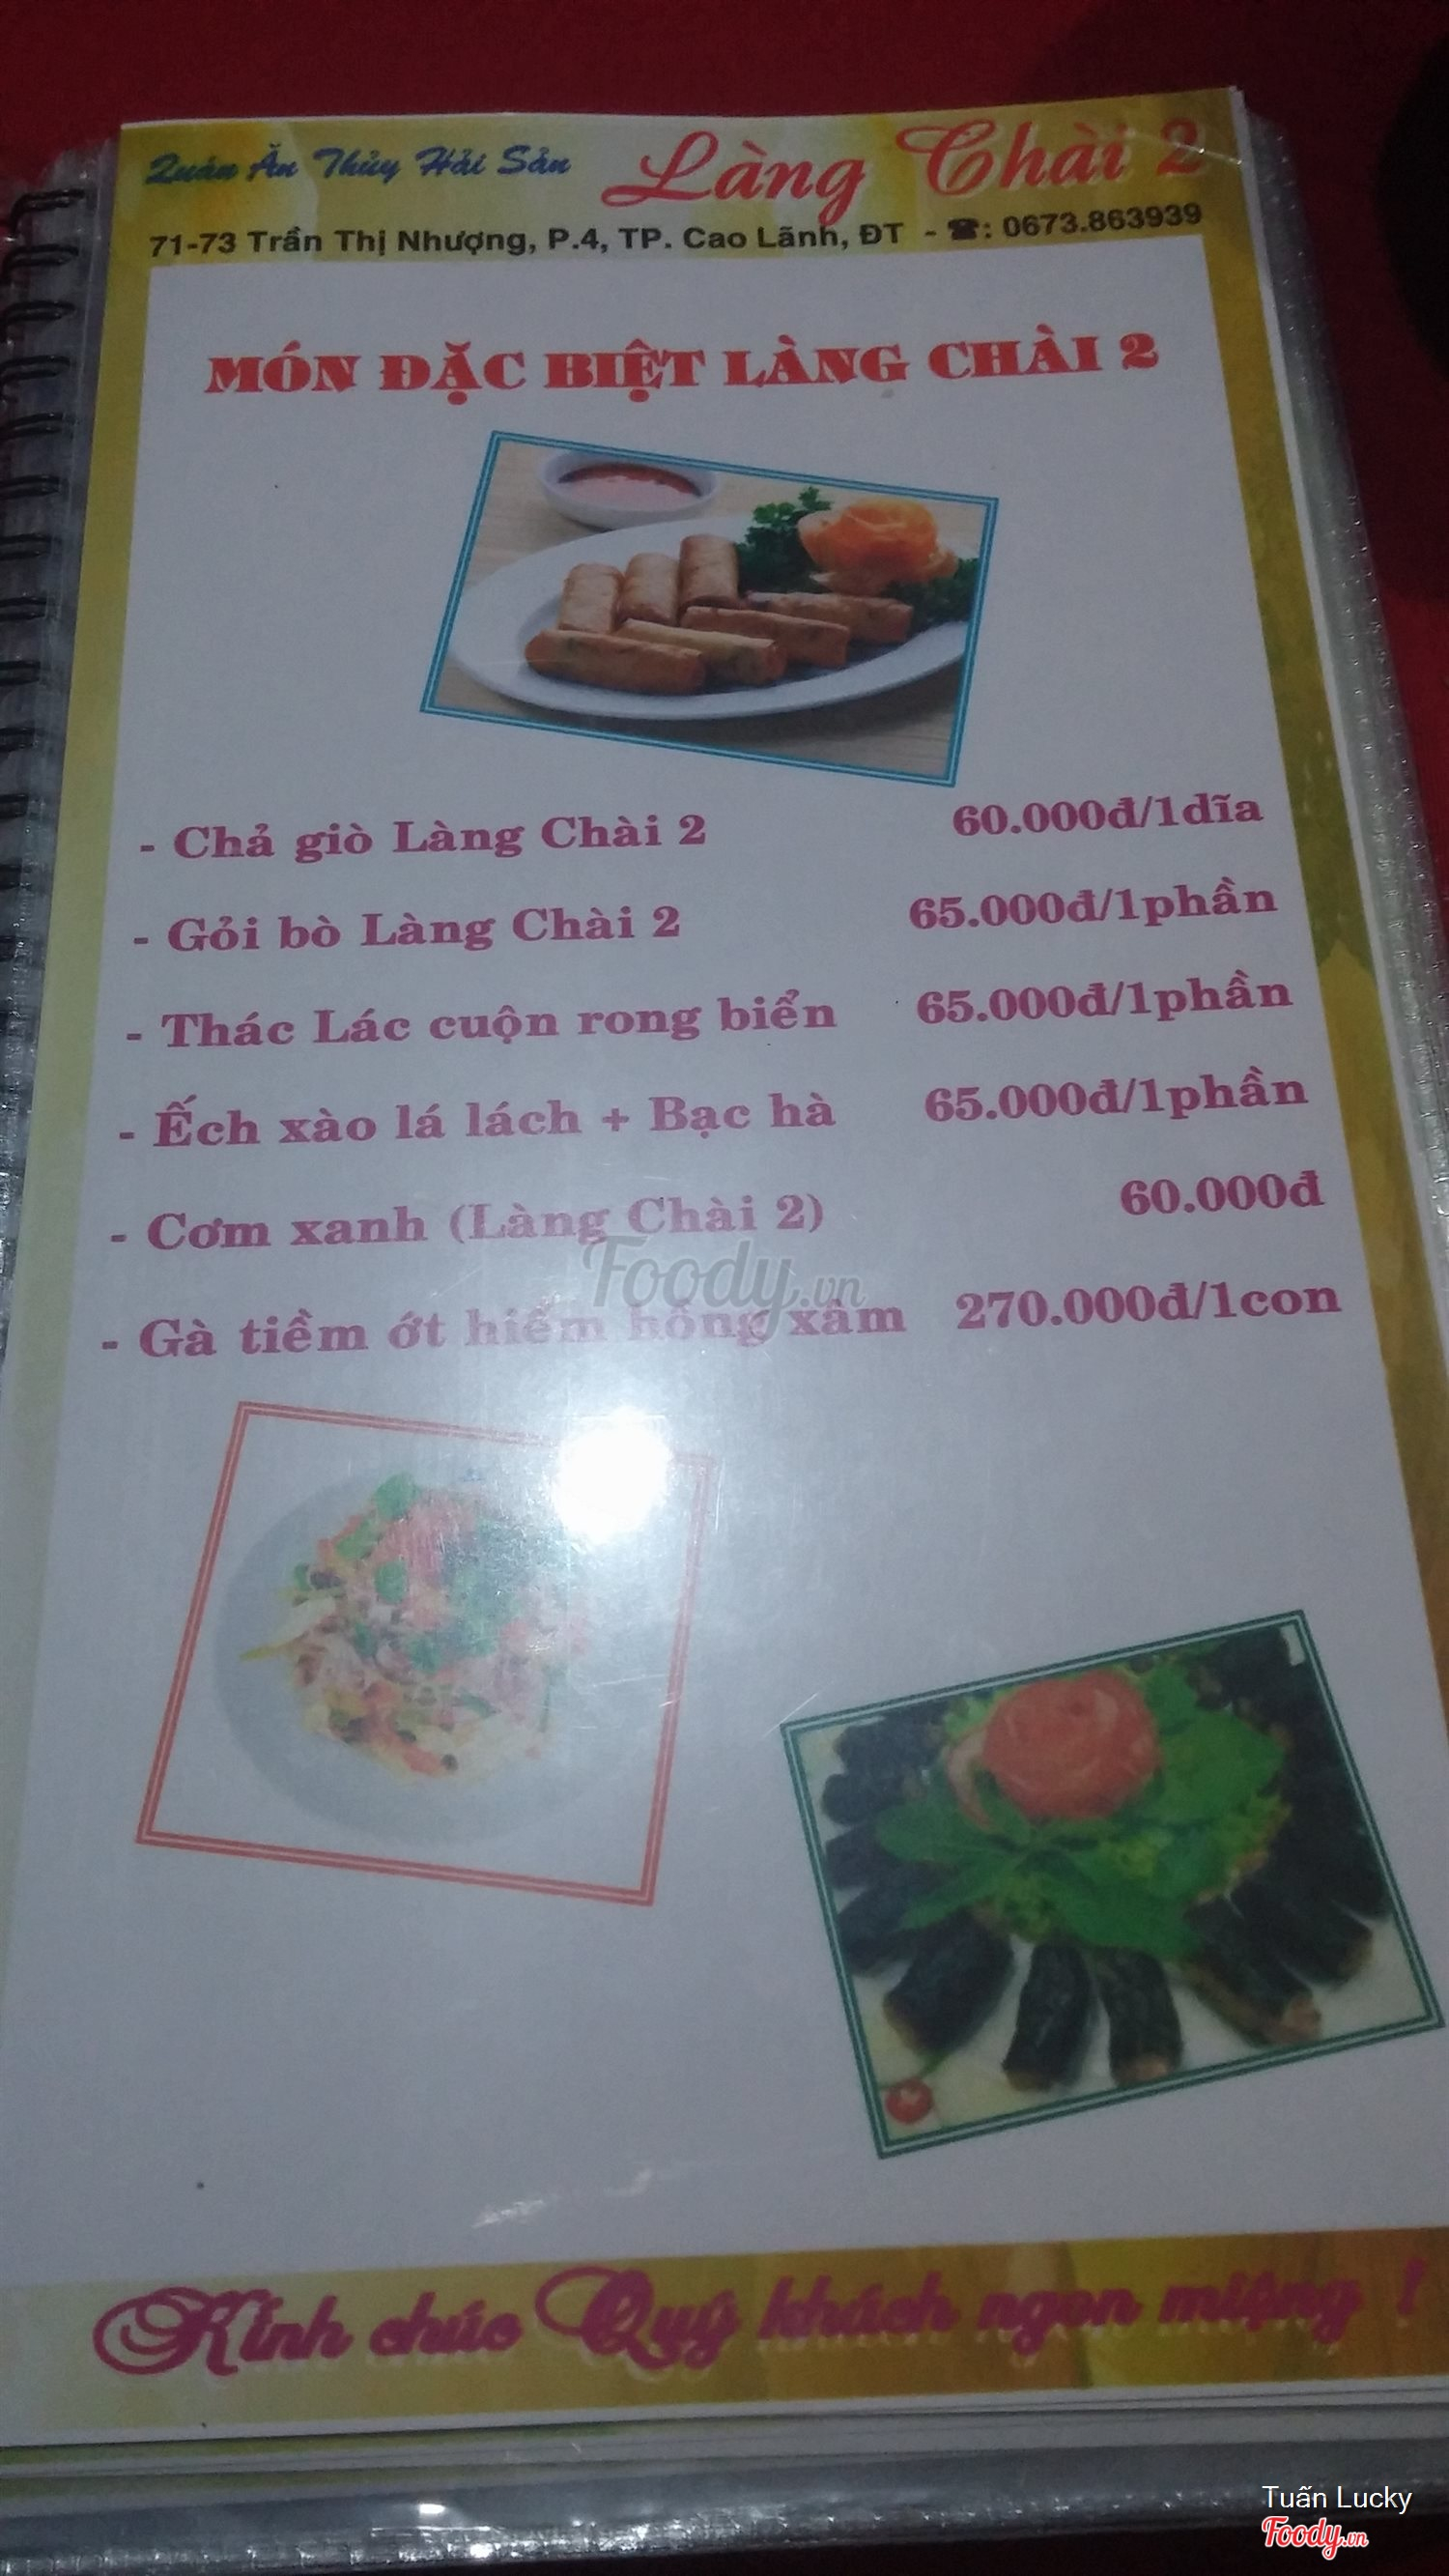 Quán Ăn Thủy Hải Sản Làng Chài 2
71-73 Trần Thị Nhượng, P.4, TP. Cao Lãnh, ĐT - ☎: 0673.863939
MÓN ĐẶC BIỆT LÀNG CHÀI 2
- Chả giò Làng Chài 2 60.000đ/1dĩa
- Gỏi bò Làng Chài 2 65.000đ/1phần
- Thác Lác cuộn rong biển 65.000đ/1phần
- Ếch xào lá lách + Bạc hà 65.000đ/1phần
- Cơm xanh (Làng Chài 2) 60.000đ
Foody.vn
- Gà tiềm ớt hiểm hồng xâm 270.000đ/1con
Kính chúc Quý khách ngon miệng !
Tuấn Lucky
Foody.vn